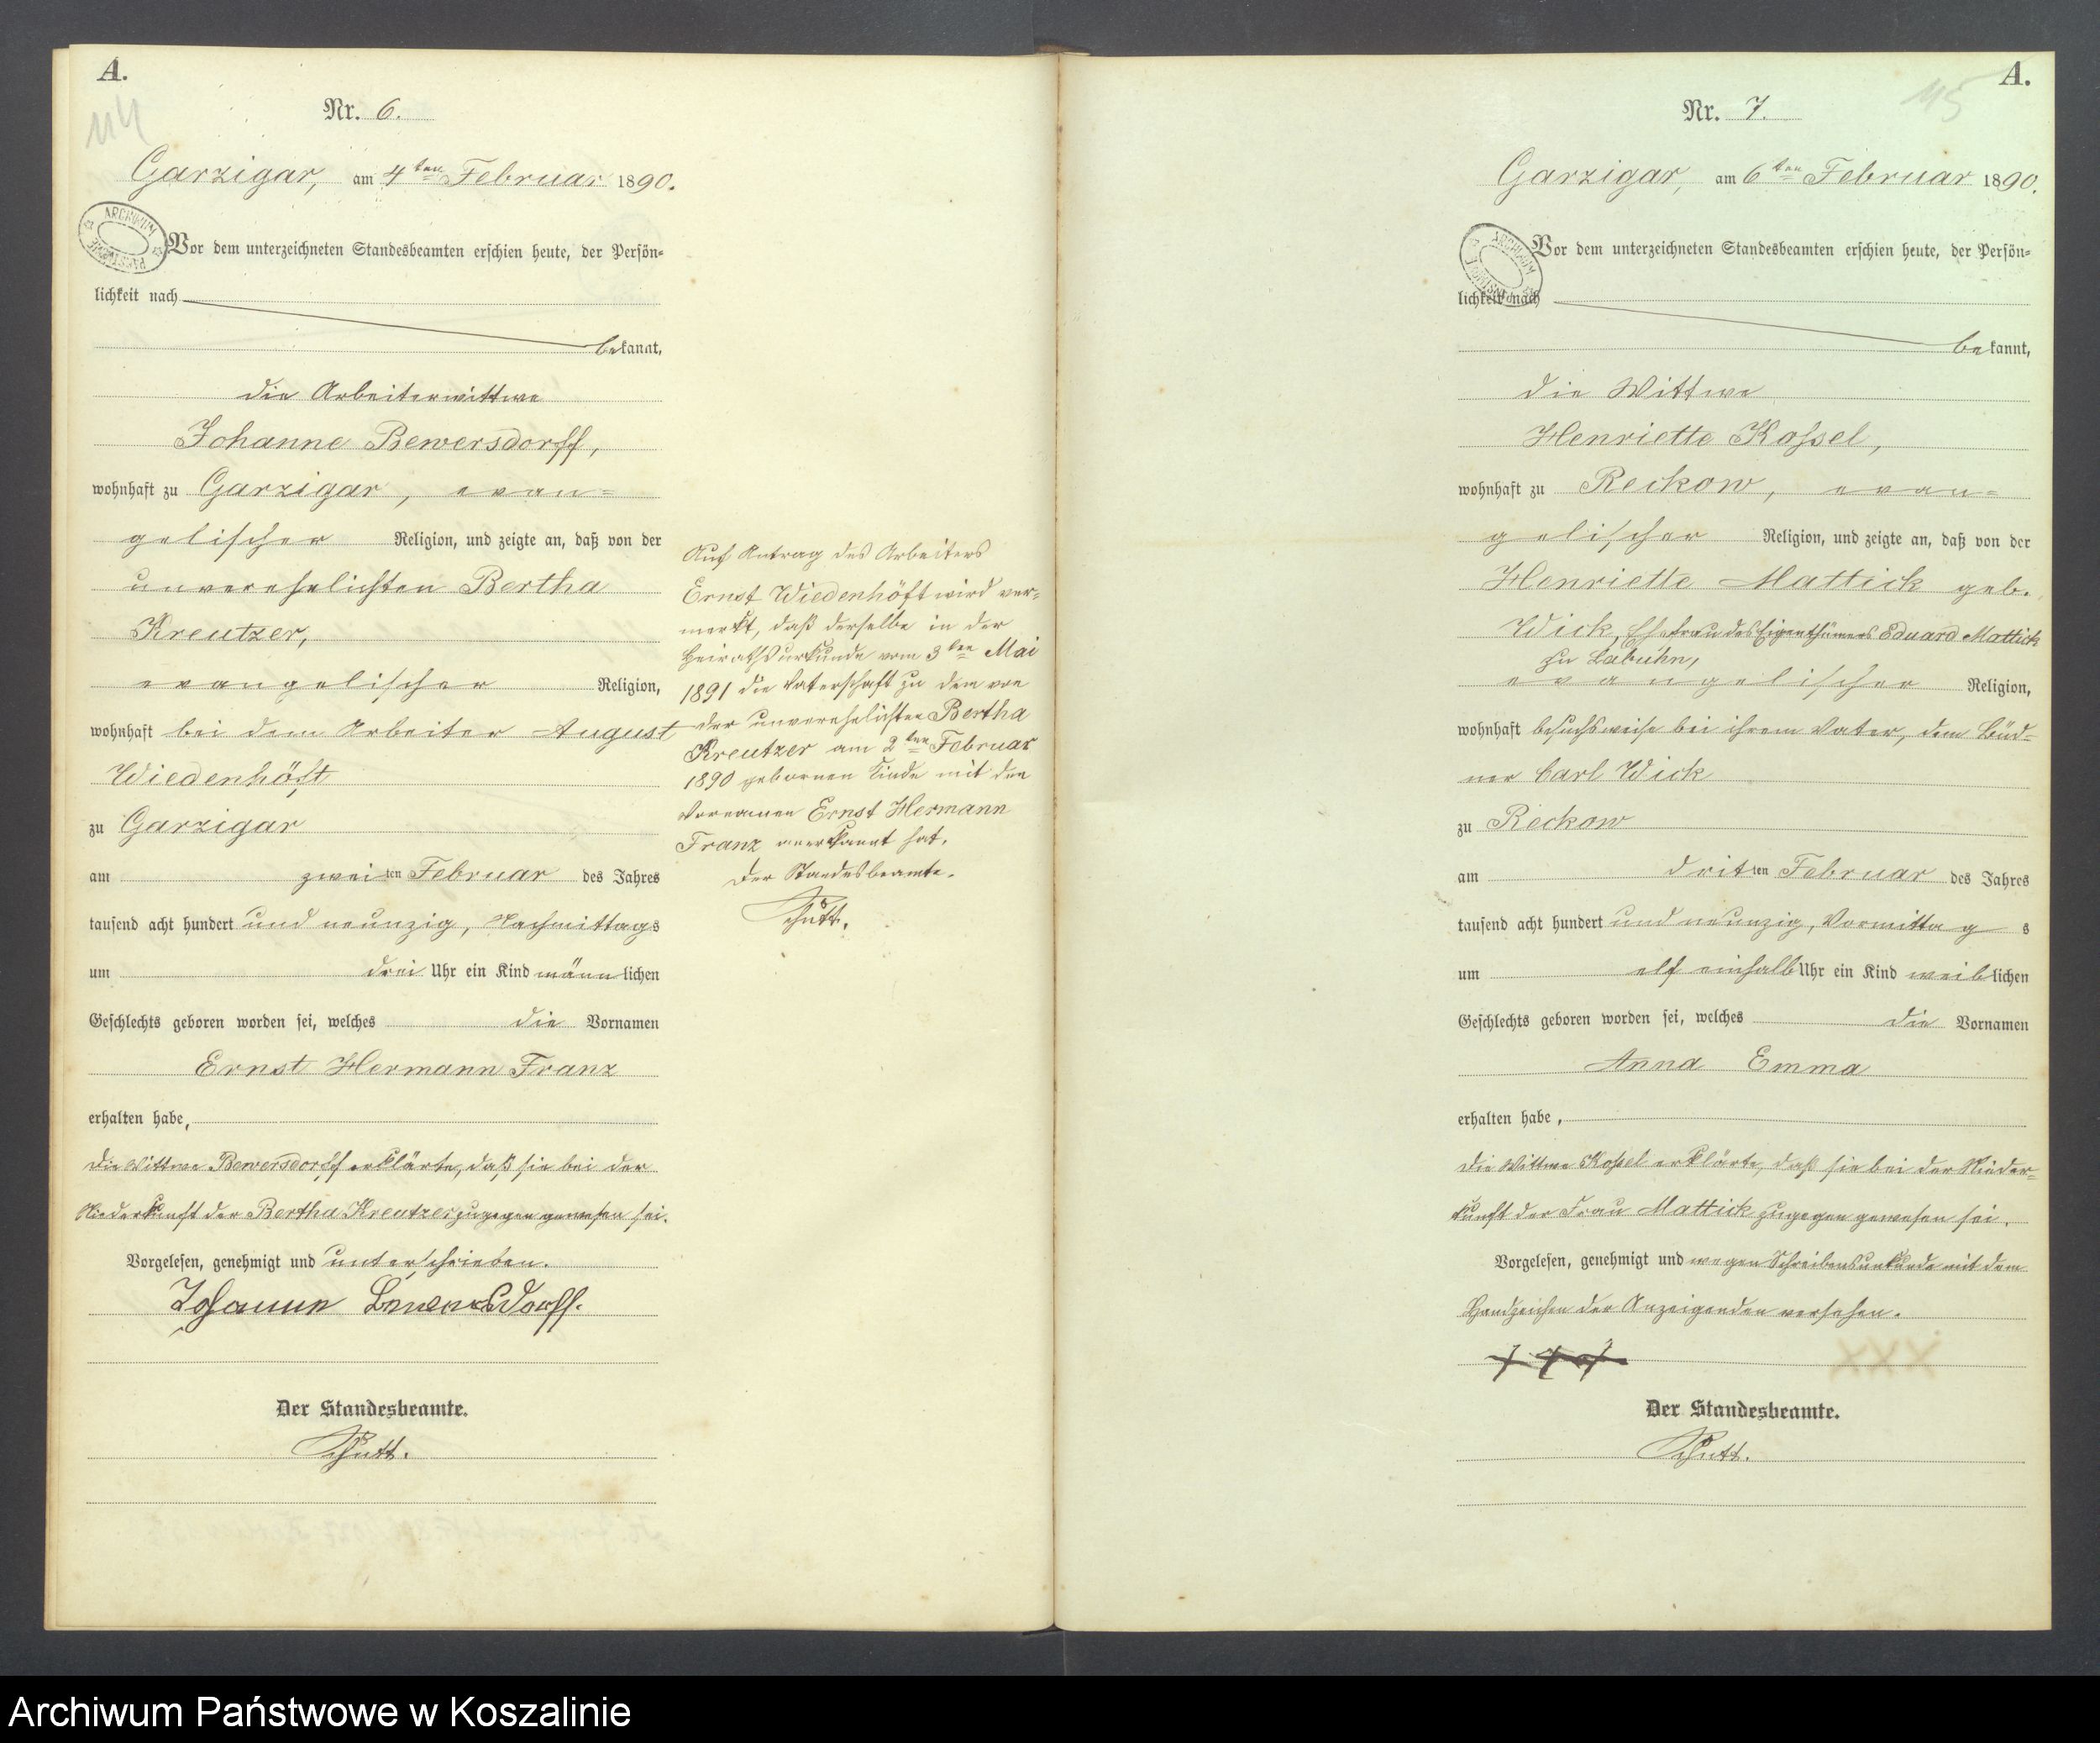 A.
114
Nr. 6.
Garzigar, am 4ten Februar 1890.
Vor dem unterzeichneten Standesbeamten erschien heute, der Persön-
lichkeit nach
bekannt,
die Arbeiterwittwe
Johanne Bewersdorff,
wohnhaft zu Garzigar, evan-
gelischer Religion, und zeigte an, daß von der
unverehelichten Bertha
Kreutzer,
evangelischer Religion,
wohnhaft bei dem Arbeiter August
Wiedenhöft
zu Garzigar
am zweiten Februar des Jahres
tausend acht hundert und neunzig, Nachmittags
um drei Uhr ein Kind männlichen
Geschlechts geboren worden sei, welches die Vornamen
Ernst Hermann Franz
erhalten habe,
Die Wittwe Bewersdorff erklärte, daß sie bei der
Niederkunft der Bertha Kreutzer zugegen gewesen sei.
Vorgelesen, genehmigt und unterschrieben.
Johanne Bewersdorff.
Der Standesbeamte.
Schütt.
Auf Antrag des Arbeiters
Ernst Wiedenhöft wird ver-
merkt, daß derselbe in der
Heirathsurkunde vom 3ten Mai
1891 die Vaterschaft zu dem von
der unverehelichten Bertha
Kreutzer am 2ten Februar
1890 gebornen Kinde mit den
Vornamen Ernst Hermann
Franz anerkannt hat.
Der Standesbeamte.
Schütt.
A.
115
Nr. 7.
Garzigar, am 6ten Februar 1890.
Vor dem unterzeichneten Standesbeamten erschien heute, der Persön-
lichkeit nach
bekannt,
die Wittwe
Henriette Koßel,
wohnhaft zu Reckow, evan-
gelischer Religion, und zeigte an, daß von der
Henriette Mattick geb.
Wick, Ehefrau des Eigenthümers Eduard Mattick
zu Labuhn,
evangelischer Religion,
wohnhaft besuchsweise bei ihrem Vater, dem Büd-
ner Carl Wick
zu Reckow
am dritten Februar des Jahres
tausend acht hundert und neunzig, Vormittags
um elf einhalb Uhr ein Kind weiblichen
Geschlechts geboren worden sei, welches die Vornamen
Anna Emma
erhalten habe,
Die Wittwe Koßel erklärte, daß sie bei der Nieder-
kunft der Frau Mattick zugegen gewesen sei.
Vorgelesen, genehmigt und wegen Schreibensunkunde mit dem
Handzeichen der Anzeigenden versehen.
Der Standesbeamte.
Schütt.
Archiwum Państwowe w Koszalinie